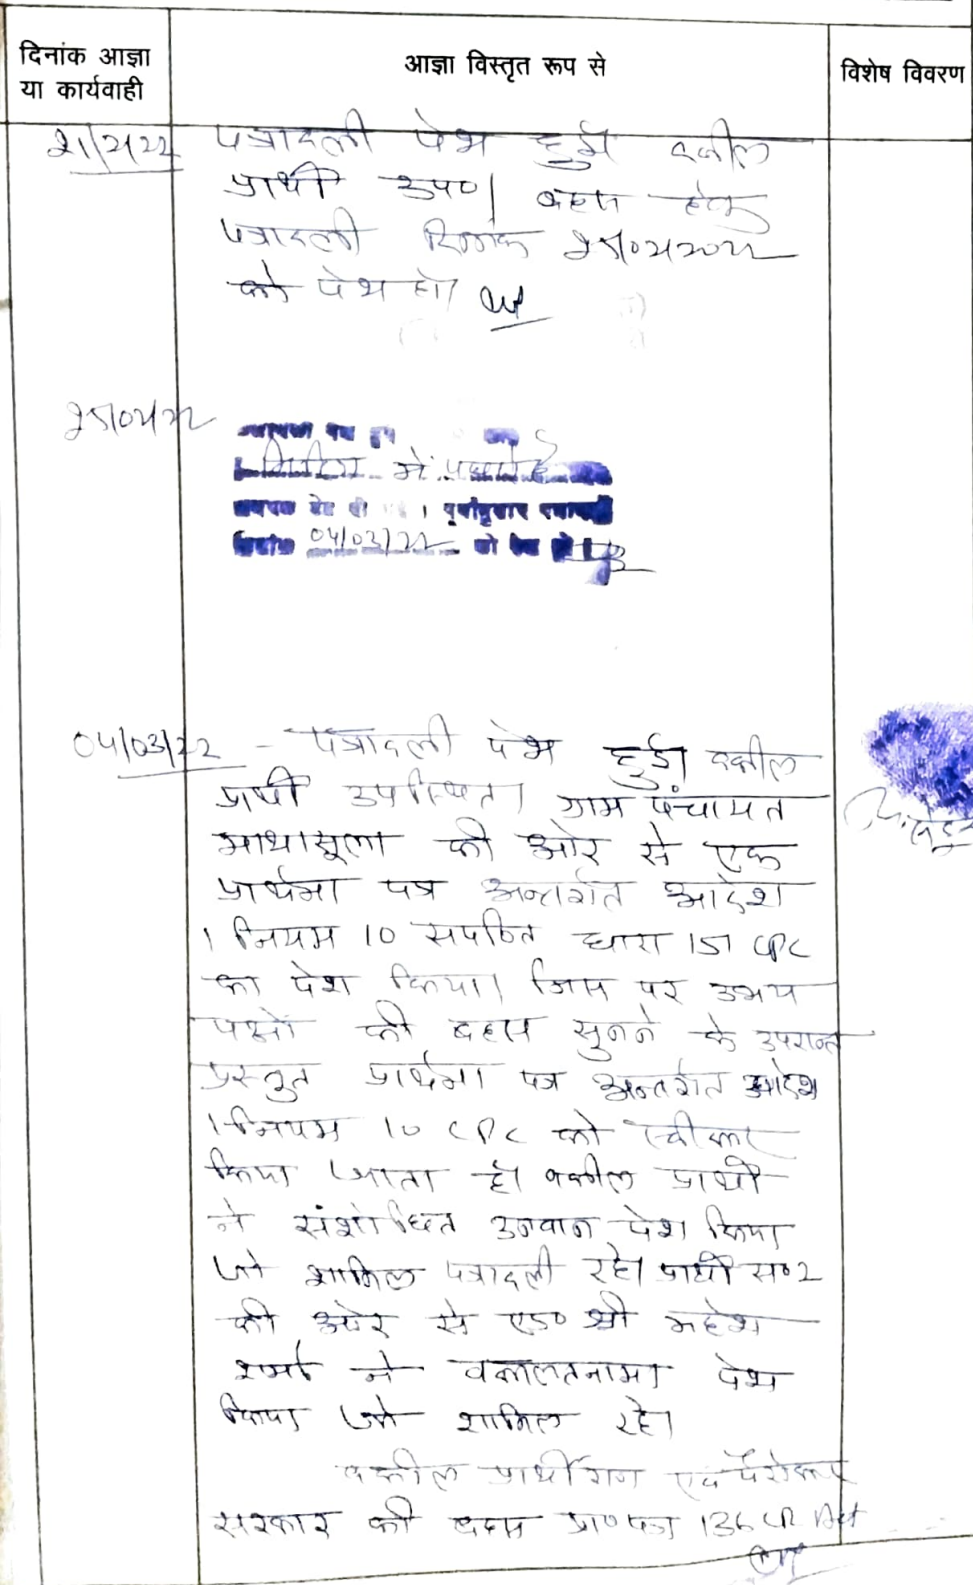 दिनांक आज्ञा
या कार्यवाही
आज्ञा विस्तृत रूप से
विशेष विवरण
21/2/22 पत्रावली पेश हुई वकील
प्रार्थी उप०। बहस हेतु
पत्रावली दिनांक 25/02/2022
को पेश हो।
25/02/22
में
पूर्वानुसार पत्रावली
दिनांक 04/03/22 को पेश हो
04/03/22 - पत्रावली पेश हुई। वकील
प्रार्थी उपस्थित। ग्राम पंचायत
माथासूला की ओर से एक
प्रार्थना पत्र अन्तर्गत आदेश
1 नियम 10 सपठित धारा 151 CPC
का पेश किया। जिस पर उभय
पक्षों की बहस सुनने के उपरान्त
प्रस्तुत प्रार्थना पत्र अन्तर्गत आदेश
1 नियम 10 CPC को स्वीकार
किया जाता है। वकील प्रार्थी
ने संशोधित उनवान पेश किया
जो शामिल पत्रावली रहे। प्रार्थी स० 2
की ओर से एड० श्री महेश
शर्मा ने वकालतनामा पेश
किया जो शामिल रहे।
वकील प्रार्थीगण एवं पैरोकार
सरकार की बहस प्रा० पत्र 136 LR Act